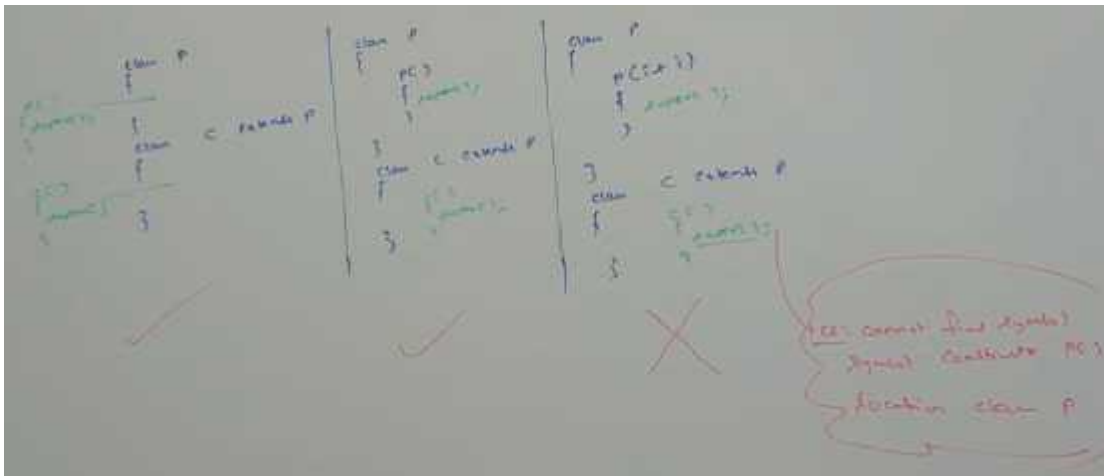 class P
{
P( )
{
super( );
}
}
class C extends P
{
C( )
{
super( );
}
}
class P
{
P( )
{
super( );
}
}
class C extends P
{
C( )
{
super( );
}
}
class P
{
P(int i)
{
super( );
}
}
class C extends P
{
C( )
{
super( );
}
}
CE: cannot find symbol
symbol: constructor P( )
location: class P